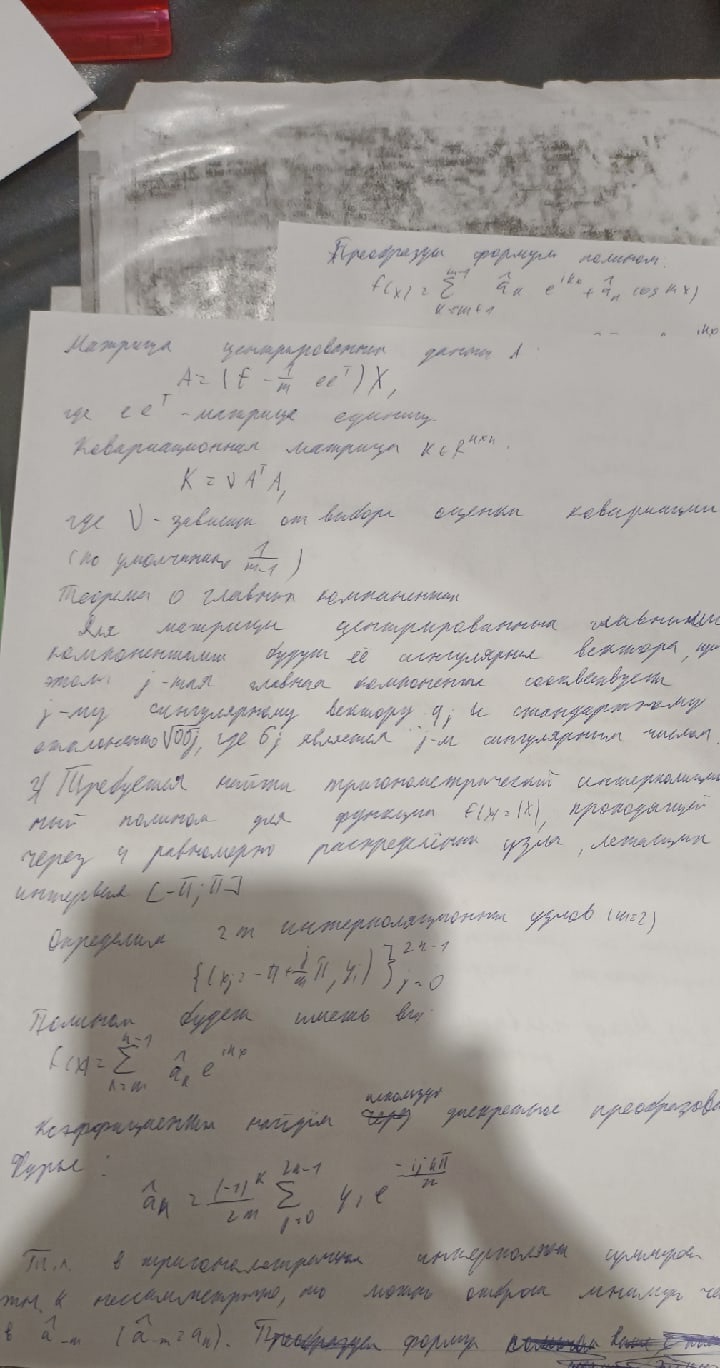 Преобразуем формулу полинома
f(x) = Σ_{k=-m+1}^{m-1} â_k e^{ikx} + â_n cos mx)
Матрица центрированных данных A:
A = (E - 1/m ee^T) X,
где ee^T - матрица единиц.
Ковариационная матрица K ∈ R^{n×n}.
K = ν A^T A,
где ν - зависит от выбора оценки ковариации
(по умолчанию 1/(m-1))
Теорема о главных компонентах
Для матрицы центрированных главными
компонентами будут её сингулярные вектора, при
этом j-тая главная компонента соответствует
j-му сингулярному вектору q_j и стандартному
отклонению √νσ_j, где σ_j является j-м сингулярным числом.
Требуется найти тригонометрический интерполяцион
ный полином для функции f(x) = |x|, проходящей
через 4 равномерно распределённых узла, лежащих
интервале [-π; π]
Определим 2m интерполяционных узлов (m=2)
{(x_j = -π + j/m π, y_j)}_{j=0}^{2n-1}
Полином будет иметь вид:
f(x) = Σ_{k=-m}^{n-1} â_k e^{ikx}
Коэффициенты найдём используя дискретные преобразова
Фурье:
â_k = (-1)^k/2m Σ_{j=0}^{2n-1} y_j e^{-ijkπ/n}
Т.к. в тригонометрических интерполяции суммиров
по k несимметрично, то можно отброс мнимую ча
в â_{-m} (â_{-m} = a_n). Преобразуем формулу